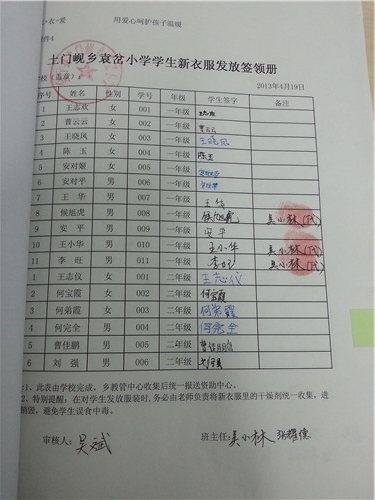 衣♥爱 用爱心呵护孩子温暖
件4
土门岘乡袁岔小学学生新衣服发放签领册
校（盖章） 2013年4月19日
序号 姓名 性别 学号 年级 学生签字 备注
1 王志欢 女 001 一年级
2 曹云云 女 002 一年级 曹云云
3 王晓凤 女 003 一年级 王晓凤
4 陈玉 女 004 一年级 陈玉
5 安对姬 女 005 一年级
6 安对平 男 006 一年级
7 王华 男 007 一年级 王华
8 侯旭虎 男 008 一年级 侯旭虎 吴小林（代）
9 安平 男 009 一年级 安平
10 王小华 男 010 一年级 王小华 吴小林（代）
11 李旺 男 011 一年级 李旺 吴小林（代）
1 王志仪 女 001 二年级 王志仪
2 何宝霞 女 002 二年级 何宝霞
3 何弟霞 女 003 二年级 何弟霞
4 何完全 男 004 二年级 何完全
5 曹佳鹏 男 005 二年级 曹佳鹏
6 刘强 男 006 二年级
:1、此表由学校完成，乡教管中心收集后统一报送资助中心。
2、特别提醒：在对学生发放服装时，务必由老师负责将新衣服里的干燥剂统一收集，进
销毁，避免学生误食中毒。
审核人：吴斌 班主任：吴小林 张耀德